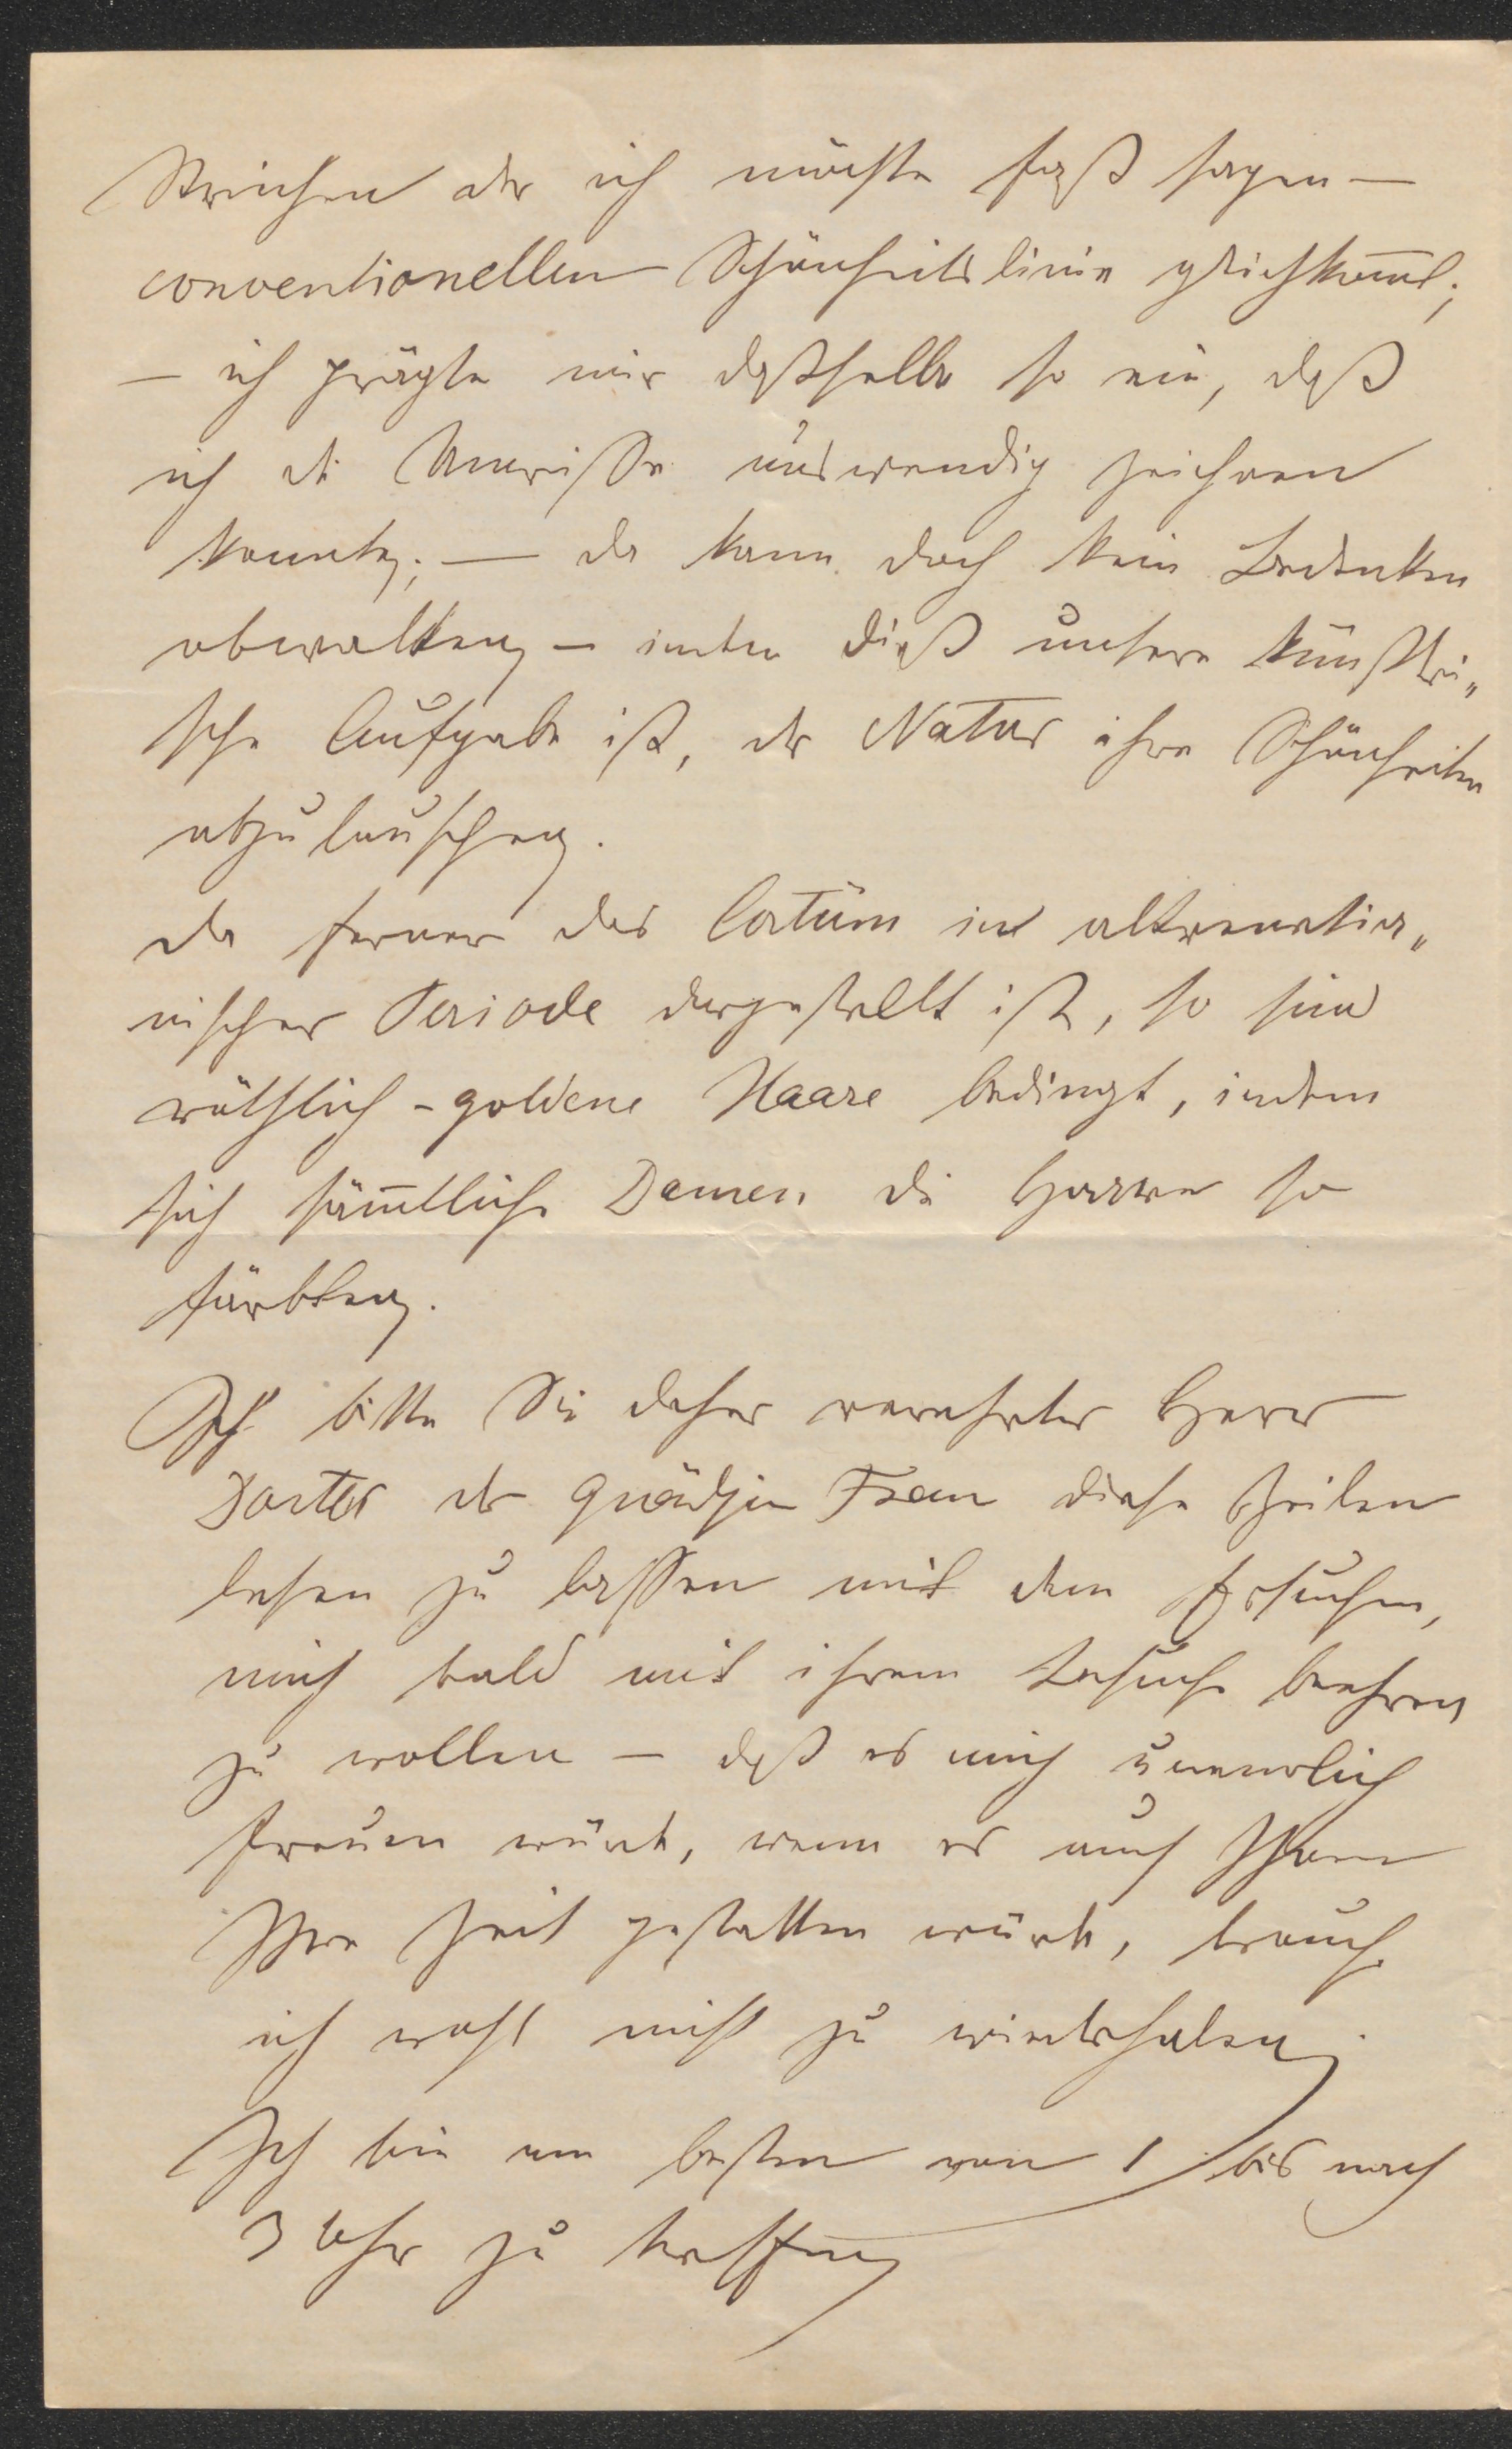 Weichen der ich möchte fast sagen —
conventionellen Schönheitslinie gleichkom̄t;
— ich prägte mir dasselbe so ein, daß
ich die Umrisse auswendig zeichnen
konnte; — da kann doch kein Bedenken
obwalten — indem dieß unsere künstleri„
sche Aufgabe ist, der Natur ihre Schönheiten
abzulauschen.
da ferner das Costüm in altvenetia„
nischer Periode dargestellt ist, so sind
röthlich-goldene Haare bedingt, indem
sich säm̄tliche Damen die Haare so
färbten.
Ich bitte Sie daher verehrter Herr
Doctor der gnädigen Frau diese Zeilen
lesen zu lassen mit dem Ersuchen,
mich bald mit ihrem Besuche beehren
zu wollen — daß es mich unendlich
freuen würde, wenn es auch Ihnen
Ihre Zeit gestatten würde, brauche
ich wohl nicht zu wiederholen.
Ich bin am besten von 1 bis nach
3 Uhr zu treffen